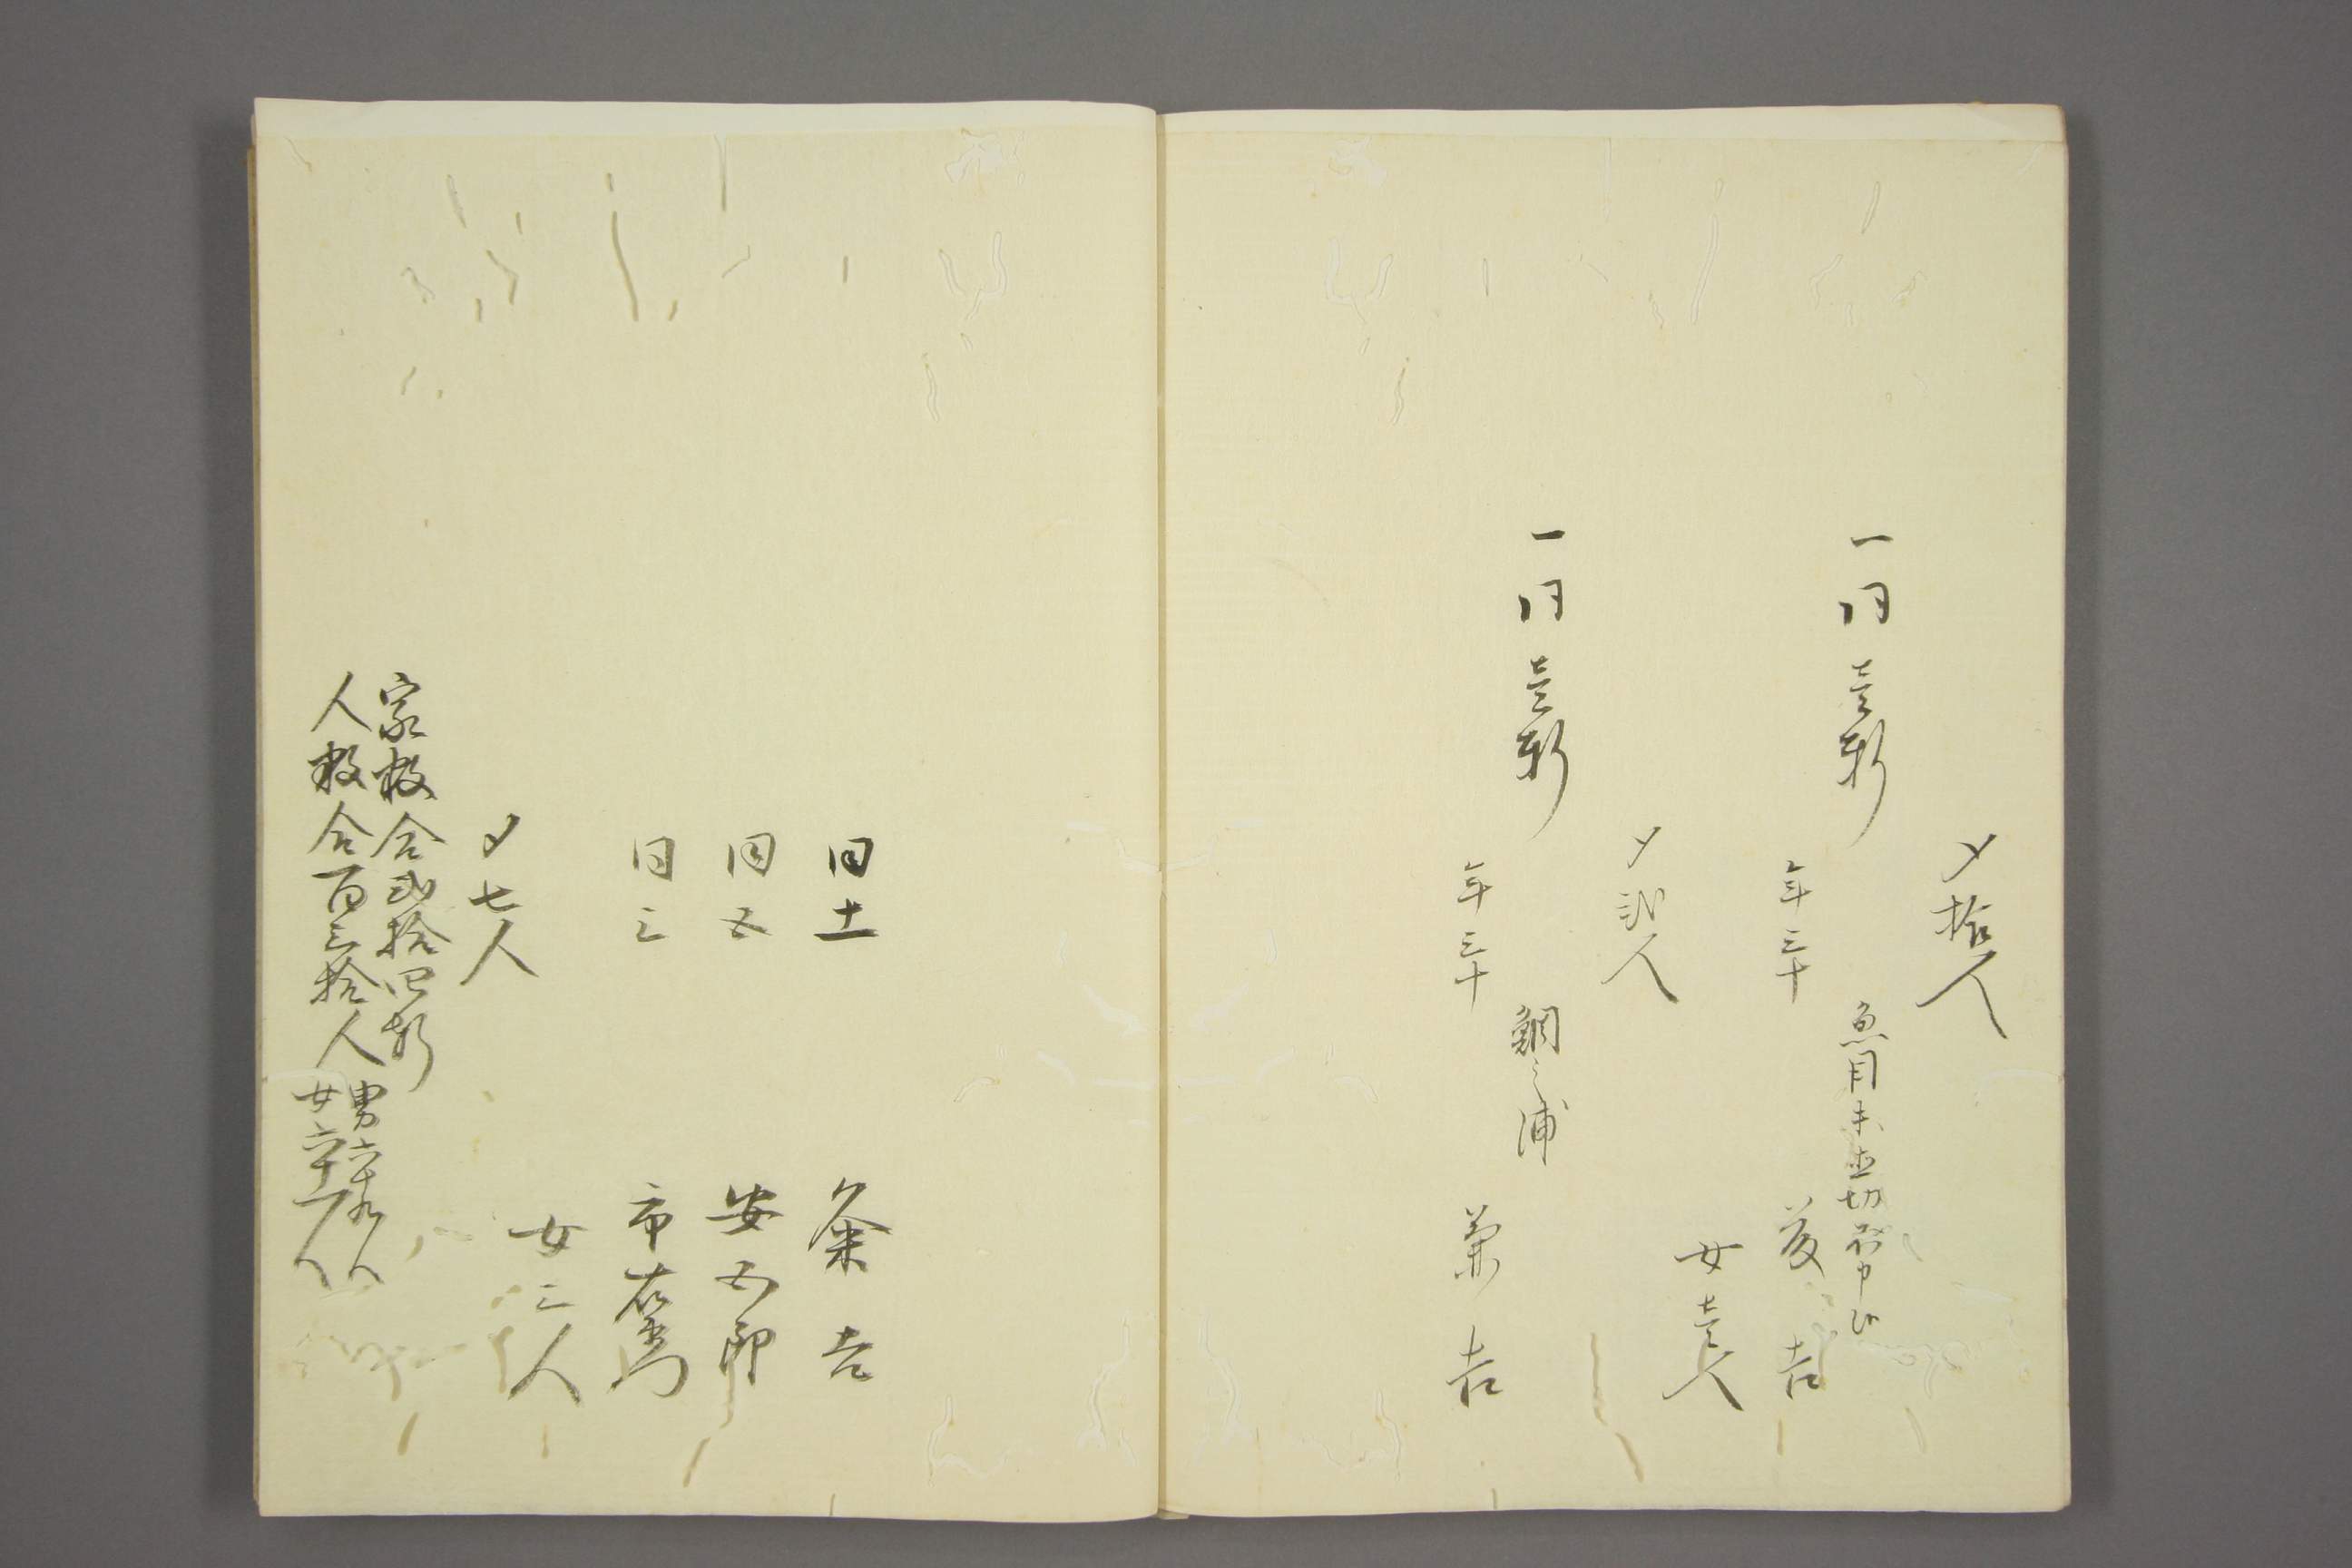 〆拾人
一同壱軒
魚目
年三十 吉
女壱人
〆弐人
一同壱軒
鯛之浦
年三十 兼吉
同十一 粂吉
同五 安五郎
同三 市右衛門
女三人
〆七人
家数合弐拾四軒
人数合百三拾人
男六十九人
女六十一人